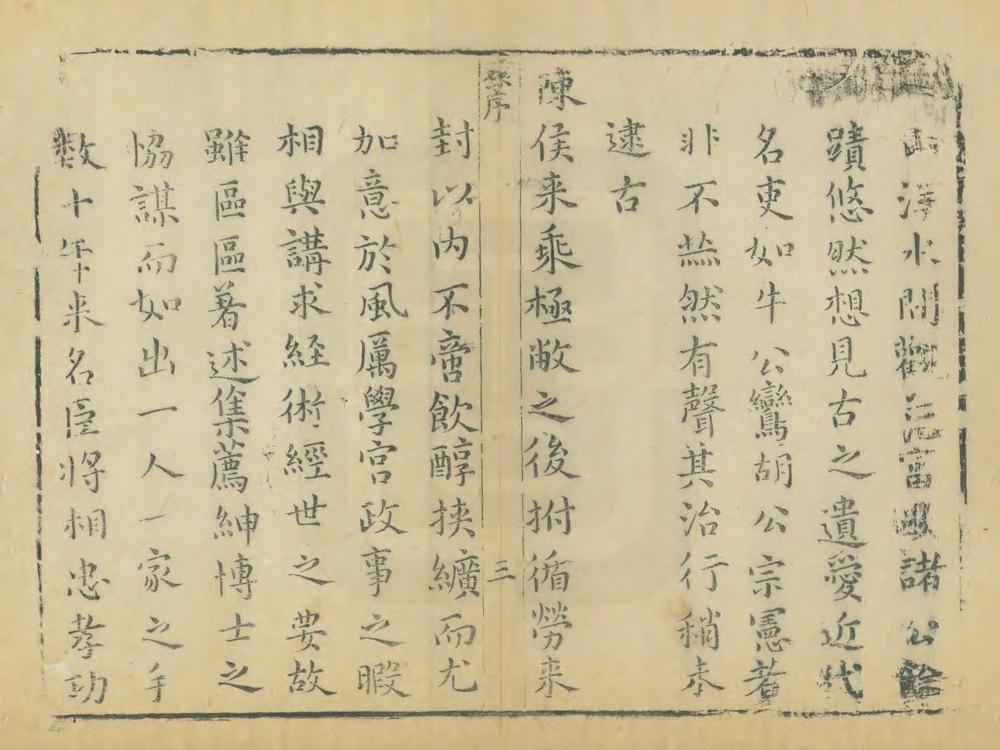 水間觀范富歐諸公餘
蹟悠然想見古之遺愛近代
名吏如牛公鸞胡公宗憲著
非不烝然有聲其治行稍未
逮古
陳侯来乘極敝之後拊循勞来
封以内不啻飲醇挾纊而尤
加意於風厲學官政事之暇
相與講求経術經世之要故
雖區區著述集薦紳博士之
恊謀而如出一人一家之手
数十年来名臣将相忠孝功
序
三